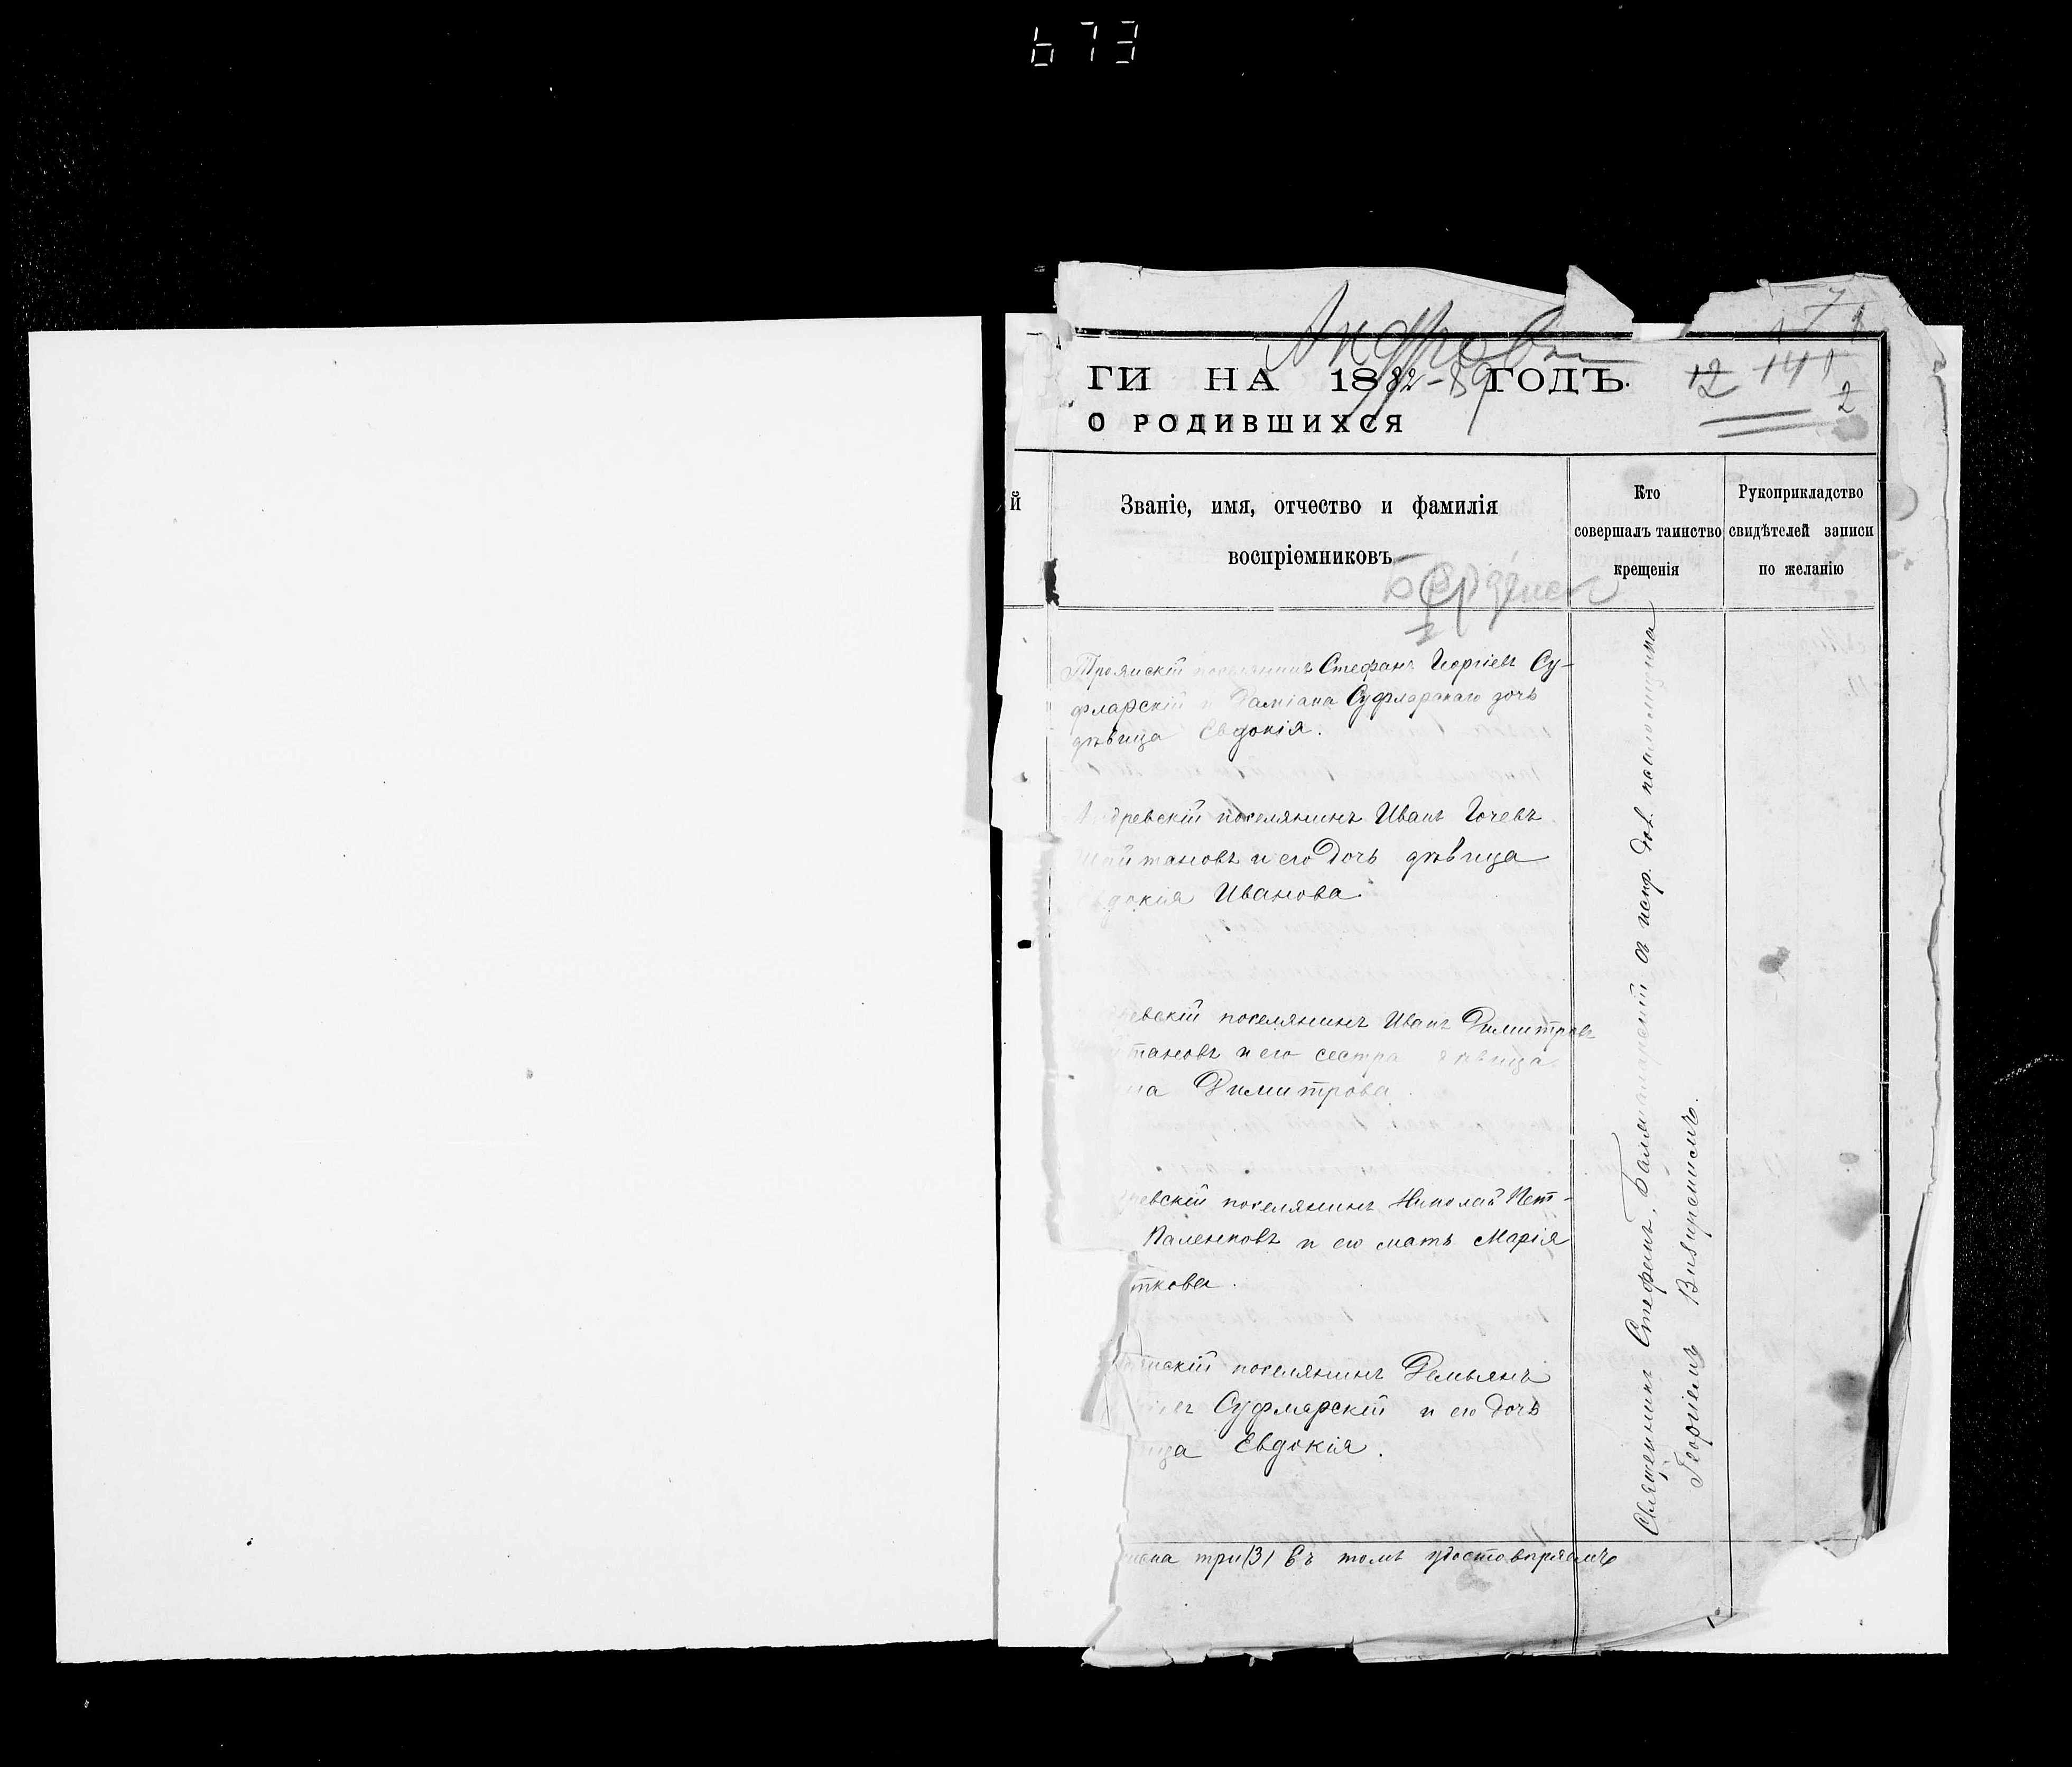 673
Андровка
ГИ НА 1882-89 ГОДЪ.
12 14
2
О РОДИВШИХСЯ
й
Званіе, имя, отчество и фамилія
воспріемниковъ
Кто
совершалъ таинство
крещенія
Рукоприкладство
свидѣтелей записи
по желанію
Троянскій поселянинъ Стефанъ Георгіевъ Су-
фларскій и Даміана Суфларскаго дочь
дѣвица Евдокія.
древскій поселянинъ Иванъ Гочевъ
Шайтановъ и его дочь дѣвица
докія Иванова.
евскій поселянинъ Иванъ Димитровъ
тановъ и его сестра дѣвица
на Димитрова.
ревскій поселянинъ Николай Пет-
Паленковъ и его мать Марія
ткова.
нскій поселянинъ Демьянъ
Суфларскій и его дочь
ица Евдокія.
Священникъ Стефанъ Балтаманскій съ испр. дол. псаломщика
Георгіемъ
три (3) Въ томъ удостовѣряемъ